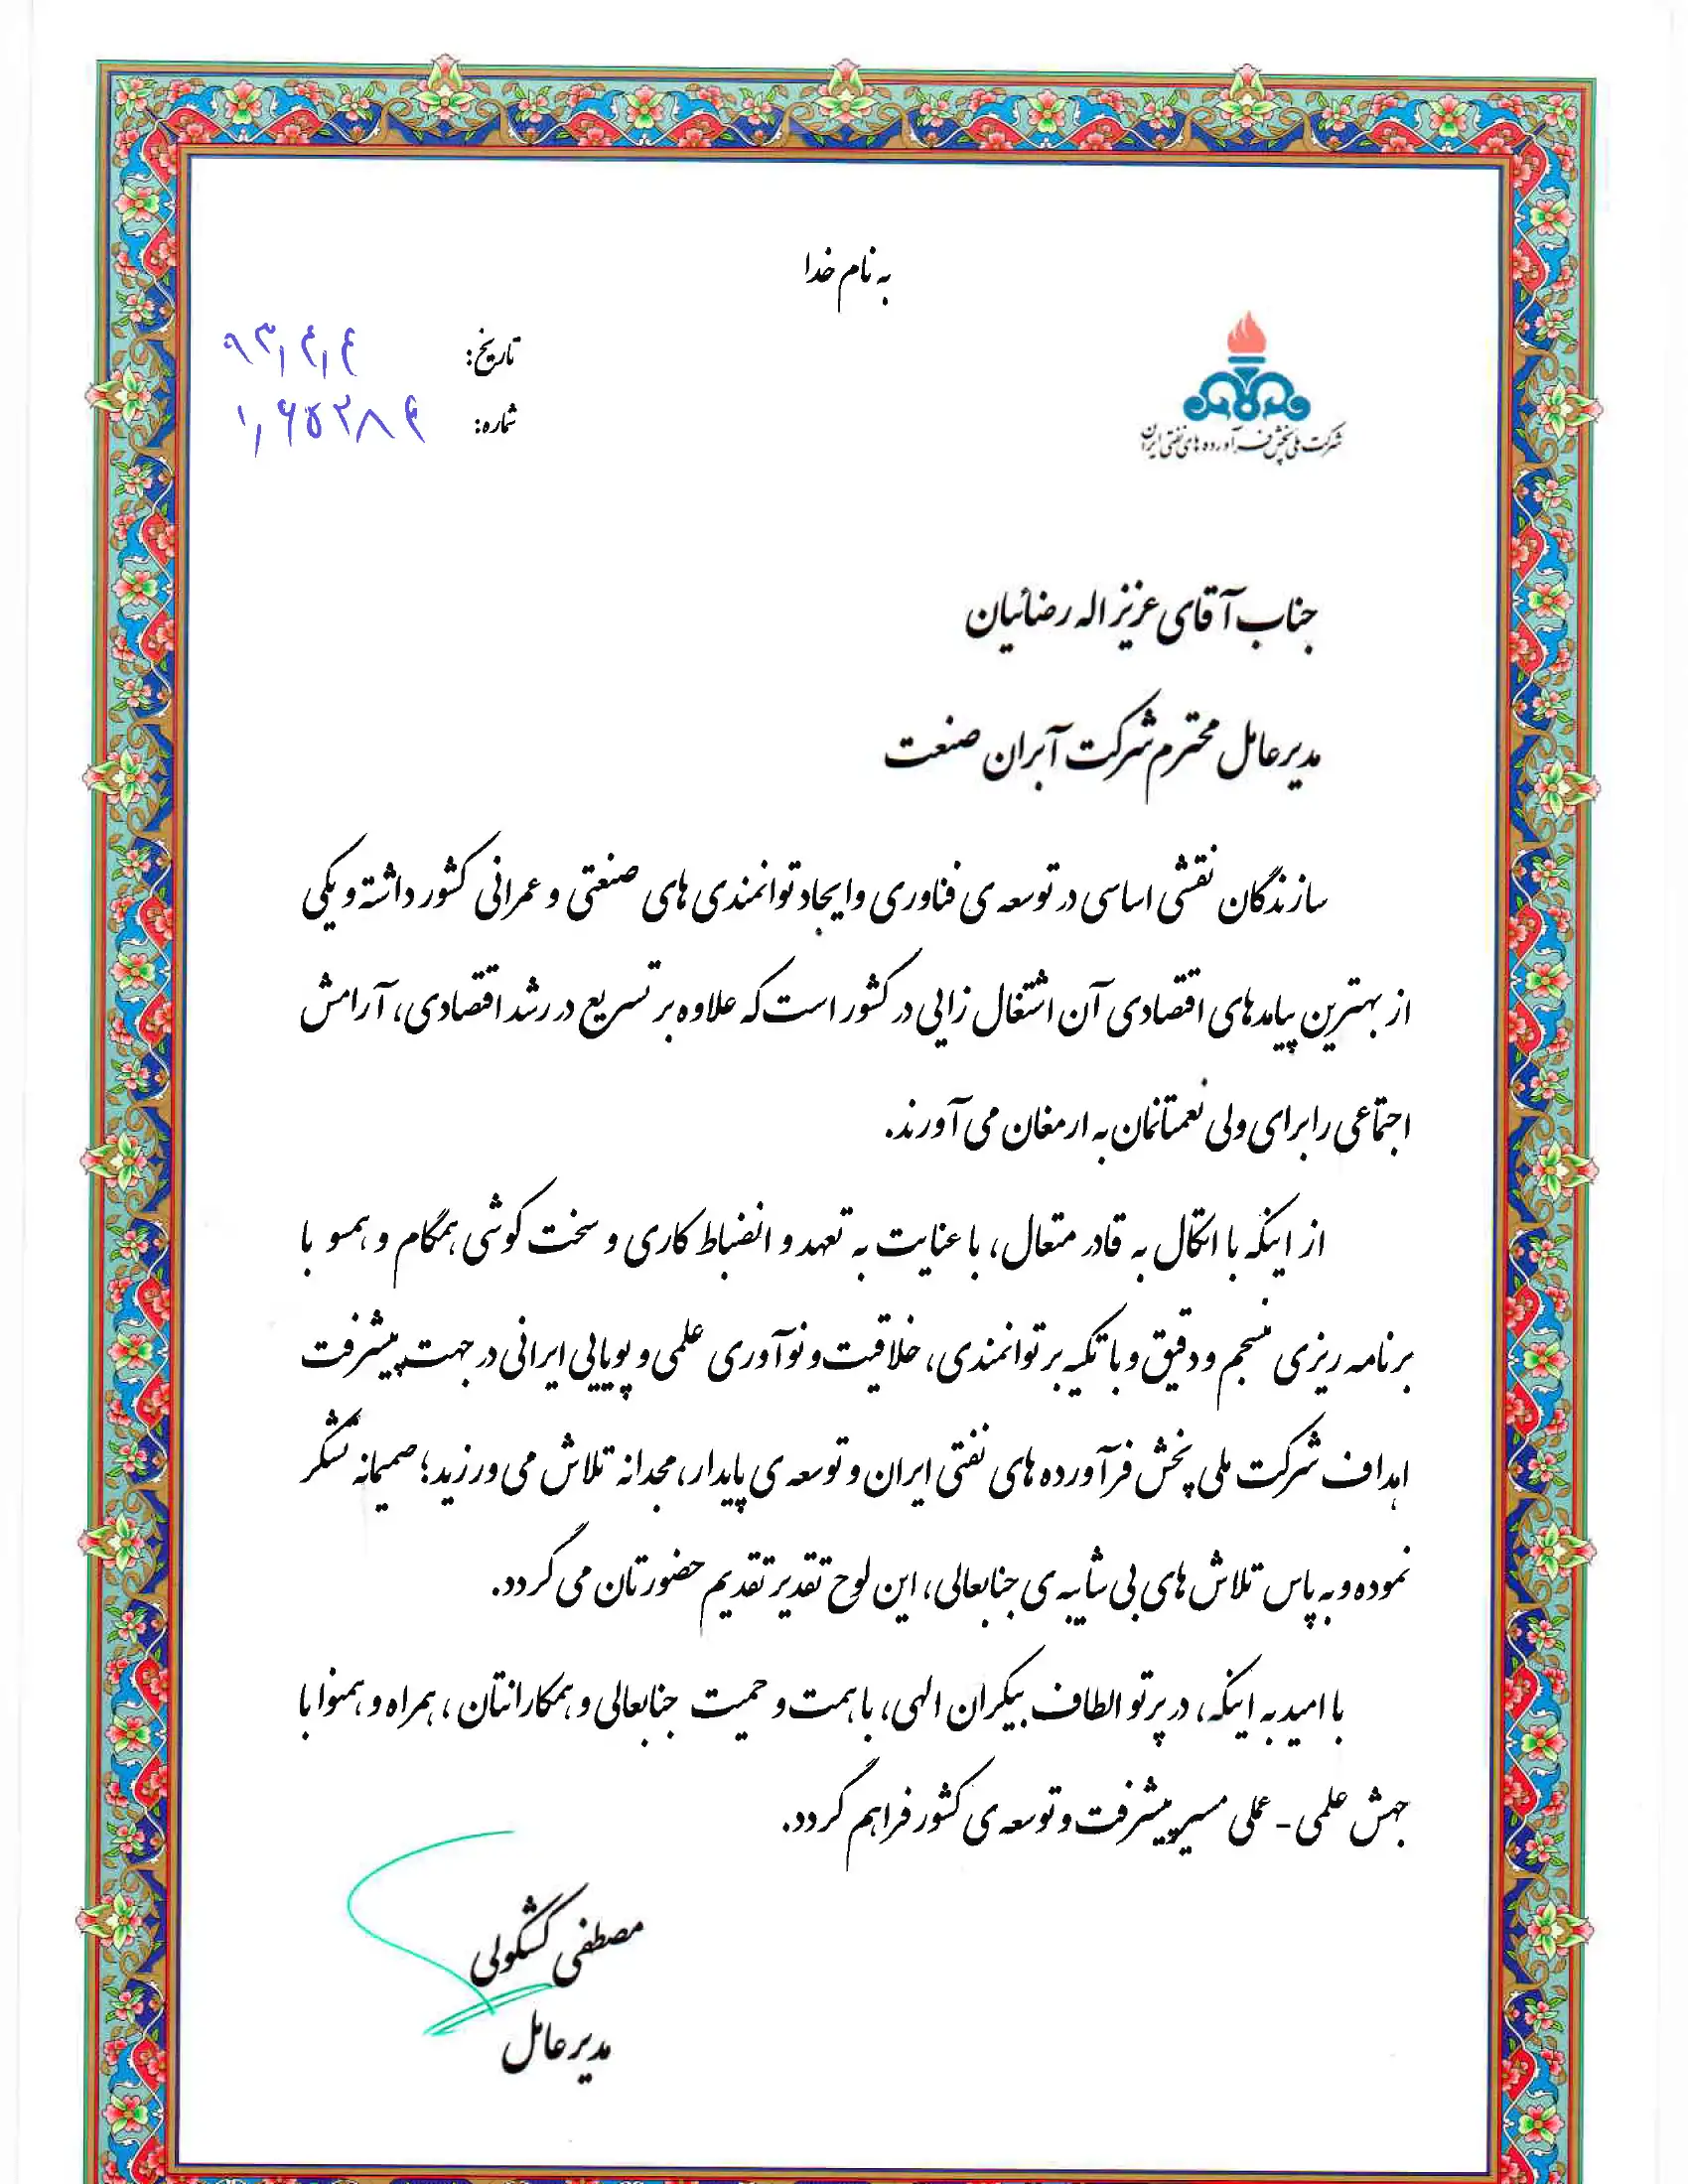 به نام خدا
تاریخ: ۹۳/۴/۴
شماره: ۱/۶۵۲۸۴
شرکت ملی پخش فرآورده های نفتی ایران
جناب آقای عزیز اله رضائیان
مدیر عامل محترم شرکت آبران صنعت
سازندگان نقشی اساسی در توسعه ی فناوری و ایجاد توانمندی های صنعتی و عمرانی کشور داشته و یکی
از بهترین پیامدهای اقتصادی آن اشتغال زایی در کشور است که علاوه بر تسریع در رشد اقتصادی، آرامش
اجتماعی را برای ولی نعمتانمان به ارمغان می آورند.
از اینکه با اتکال به قادر متعال، با عنایت به تعهد و انضباط کاری و سخت کوشی همگام و همسو با
برنامه ریزی منسجم و دقیق و با تکیه بر توانمندی، خلاقیت و نوآوری علمی و پویایی ایرانی در جهت پیشرفت
اهداف شرکت ملی پخش فرآورده های نفتی ایران و توسعه ی پایدار، مجدانه تلاش می ورزید؛ صمیمانه تشکر
نموده و به پاس تلاش های بی شایبه ی جنابعالی، این لوح تقدیر تقدیم حضورتان می گردد.
با امید به اینکه، در پرتو الطاف بیکران الهی، با همت و حمیت جنابعالی و همکارانتان، همراه و همنوا با
جهش علمی - عملی مسیر پیشرفت و توسعه ی کشور فراهم گردد.
مصطفی کشکولی
مدیر عامل